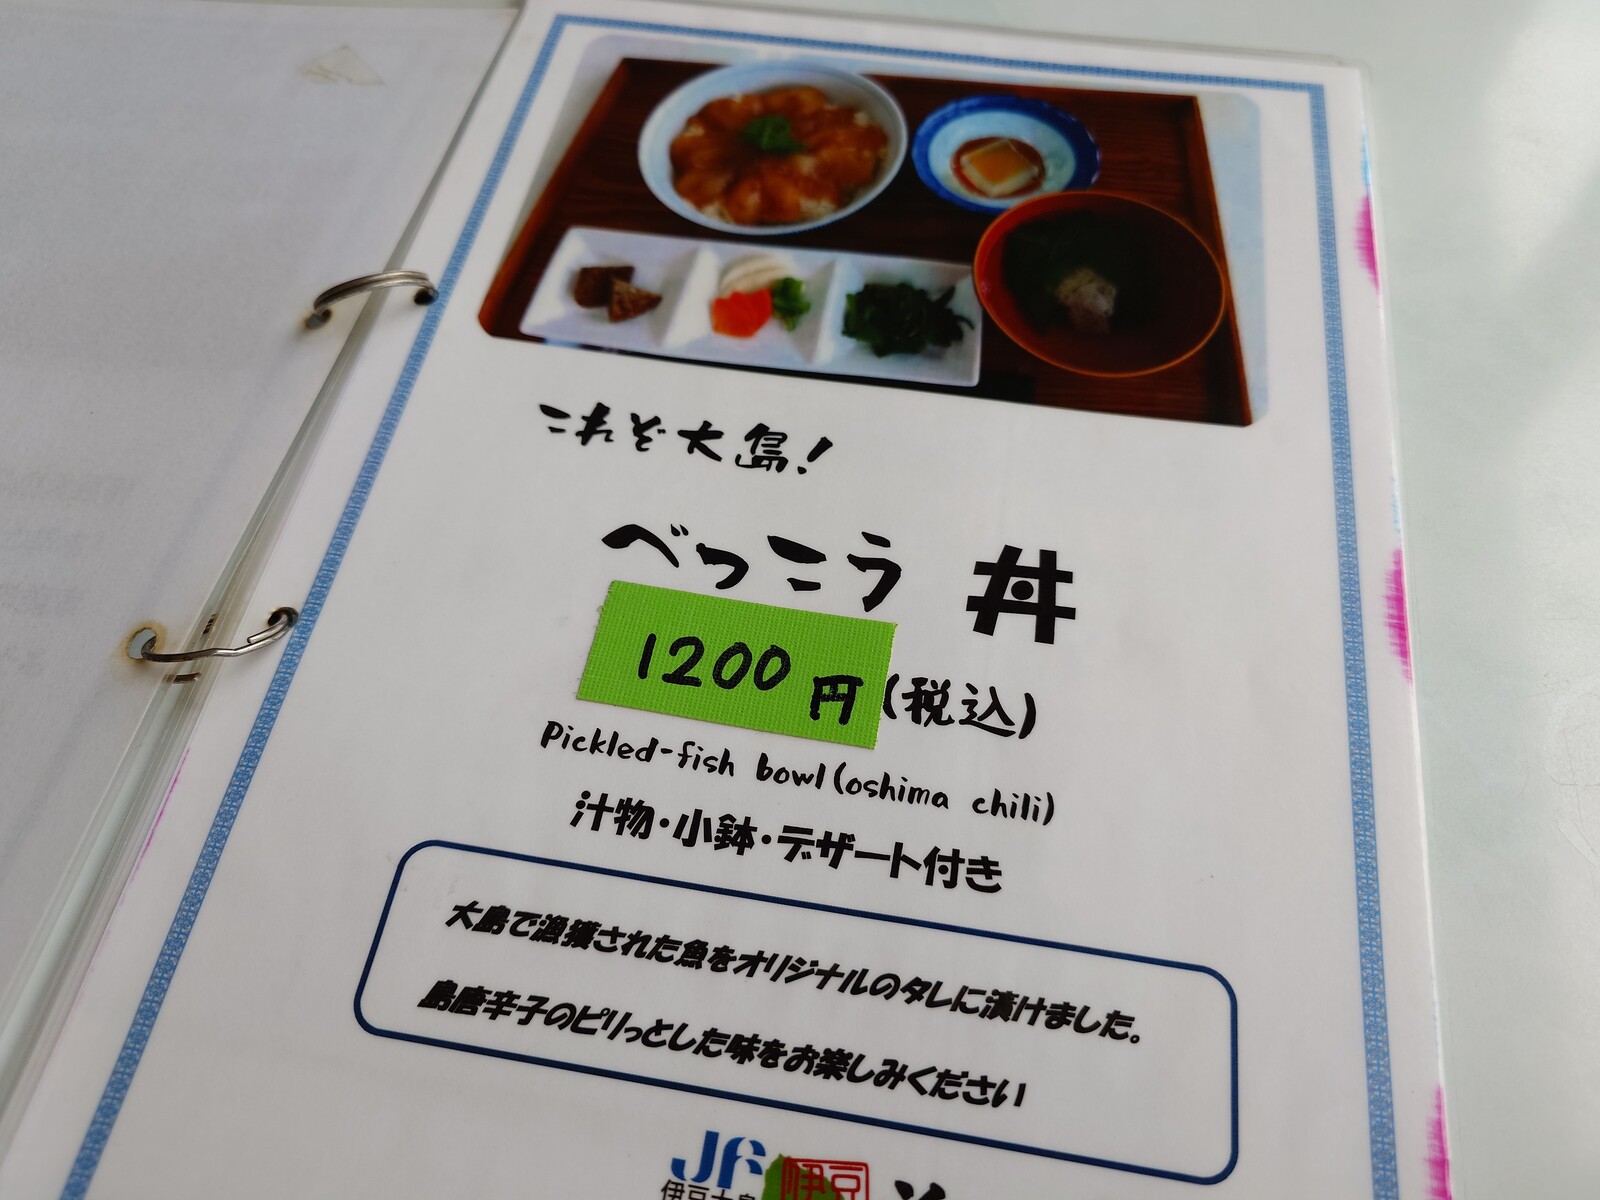 これぞ大島!
べっこう丼
1200円(税込)
Pickled-fish bowl(oshima chili)
汁物・小鉢・デザート付き
大島で漁獲された魚をオリジナルのタレに漬けました。
島唐辛子のピリっとした味をお楽しみください
JF 伊豆
伊豆大島